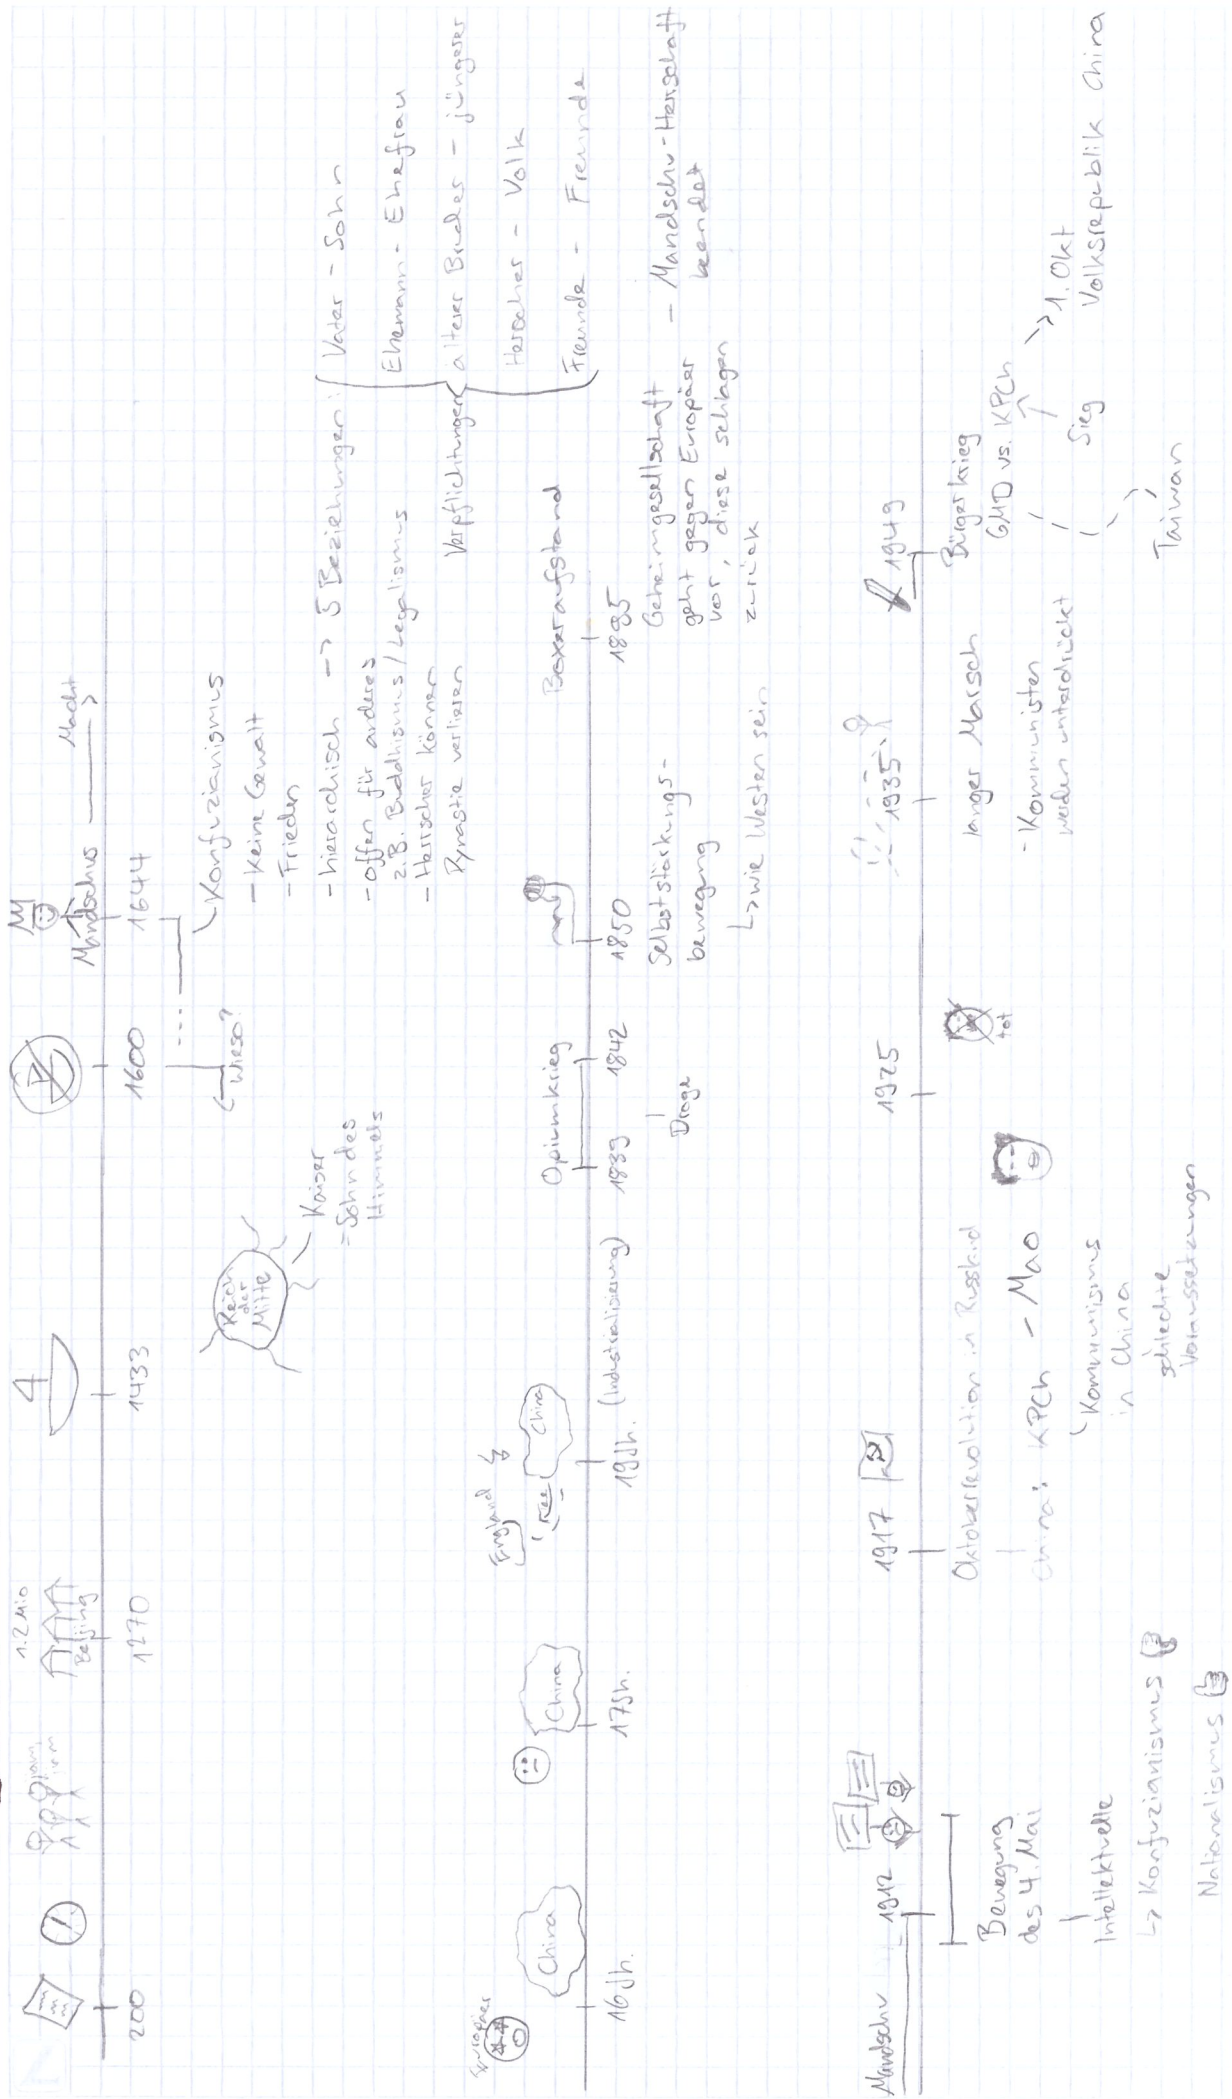 1.2 Mio
Beijing
Mandschus
Macht
200
1270
1433
1600
1644
Wieso?
Reich
der
Mitte
Kaiser
= Sohn des
Himmels
Konfuzianismus
- Keine Gewalt
- Frieden
- hierarchisch -> 5 Beziehungen:
- offen für anderes
z.B. Buddhismus/Legalismus
- Herrscher können
Dynastie verlieren
Verpflichtungen
Vater - Sohn
Ehemann - Ehefrau
älterer Bruder - jüngerer
Herrscher - Volk
Freunde - Freunde
Europäer
China
China
England
Tee
China
Opiumkrieg
Boxeraufstand
16Jh.
17Jh.
19Jh. (Industrialisierung)
1839
1842
1850
1895
Droge
Selbststärkungs-
bewegung
↳ wie Westen sein
Geheimgesellschaft
geht gegen Europäer
vor, diese schlagen
zurück
- Mandschu-Herrschaft
beendet
Mandschu
1912
1917
1925
1935
1949
Bewegung
des 4. Mai
Intellektuelle
↳ Konfuzianismus
Nationalismus
Oktoberrevolution in Russland
China: KPCh - Mao
Kommunismus
in China
schlechte
Voraussetzungen
tot
langer Marsch
- Kommunisten
werden unterdrückt
Bürgerkrieg
GMD vs. KPCh
Sieg
Taiwan
-> 1. Okt
Volksrepublik China